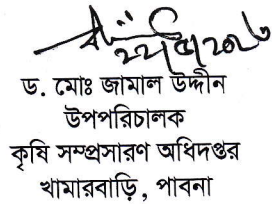 ২২/৫/২০২৬
ড. মোঃ জামাল উদ্দীন
উপপরিচালক
কৃষি সম্প্রসারণ অধিদপ্তর
খামারবাড়ি, পাবনা